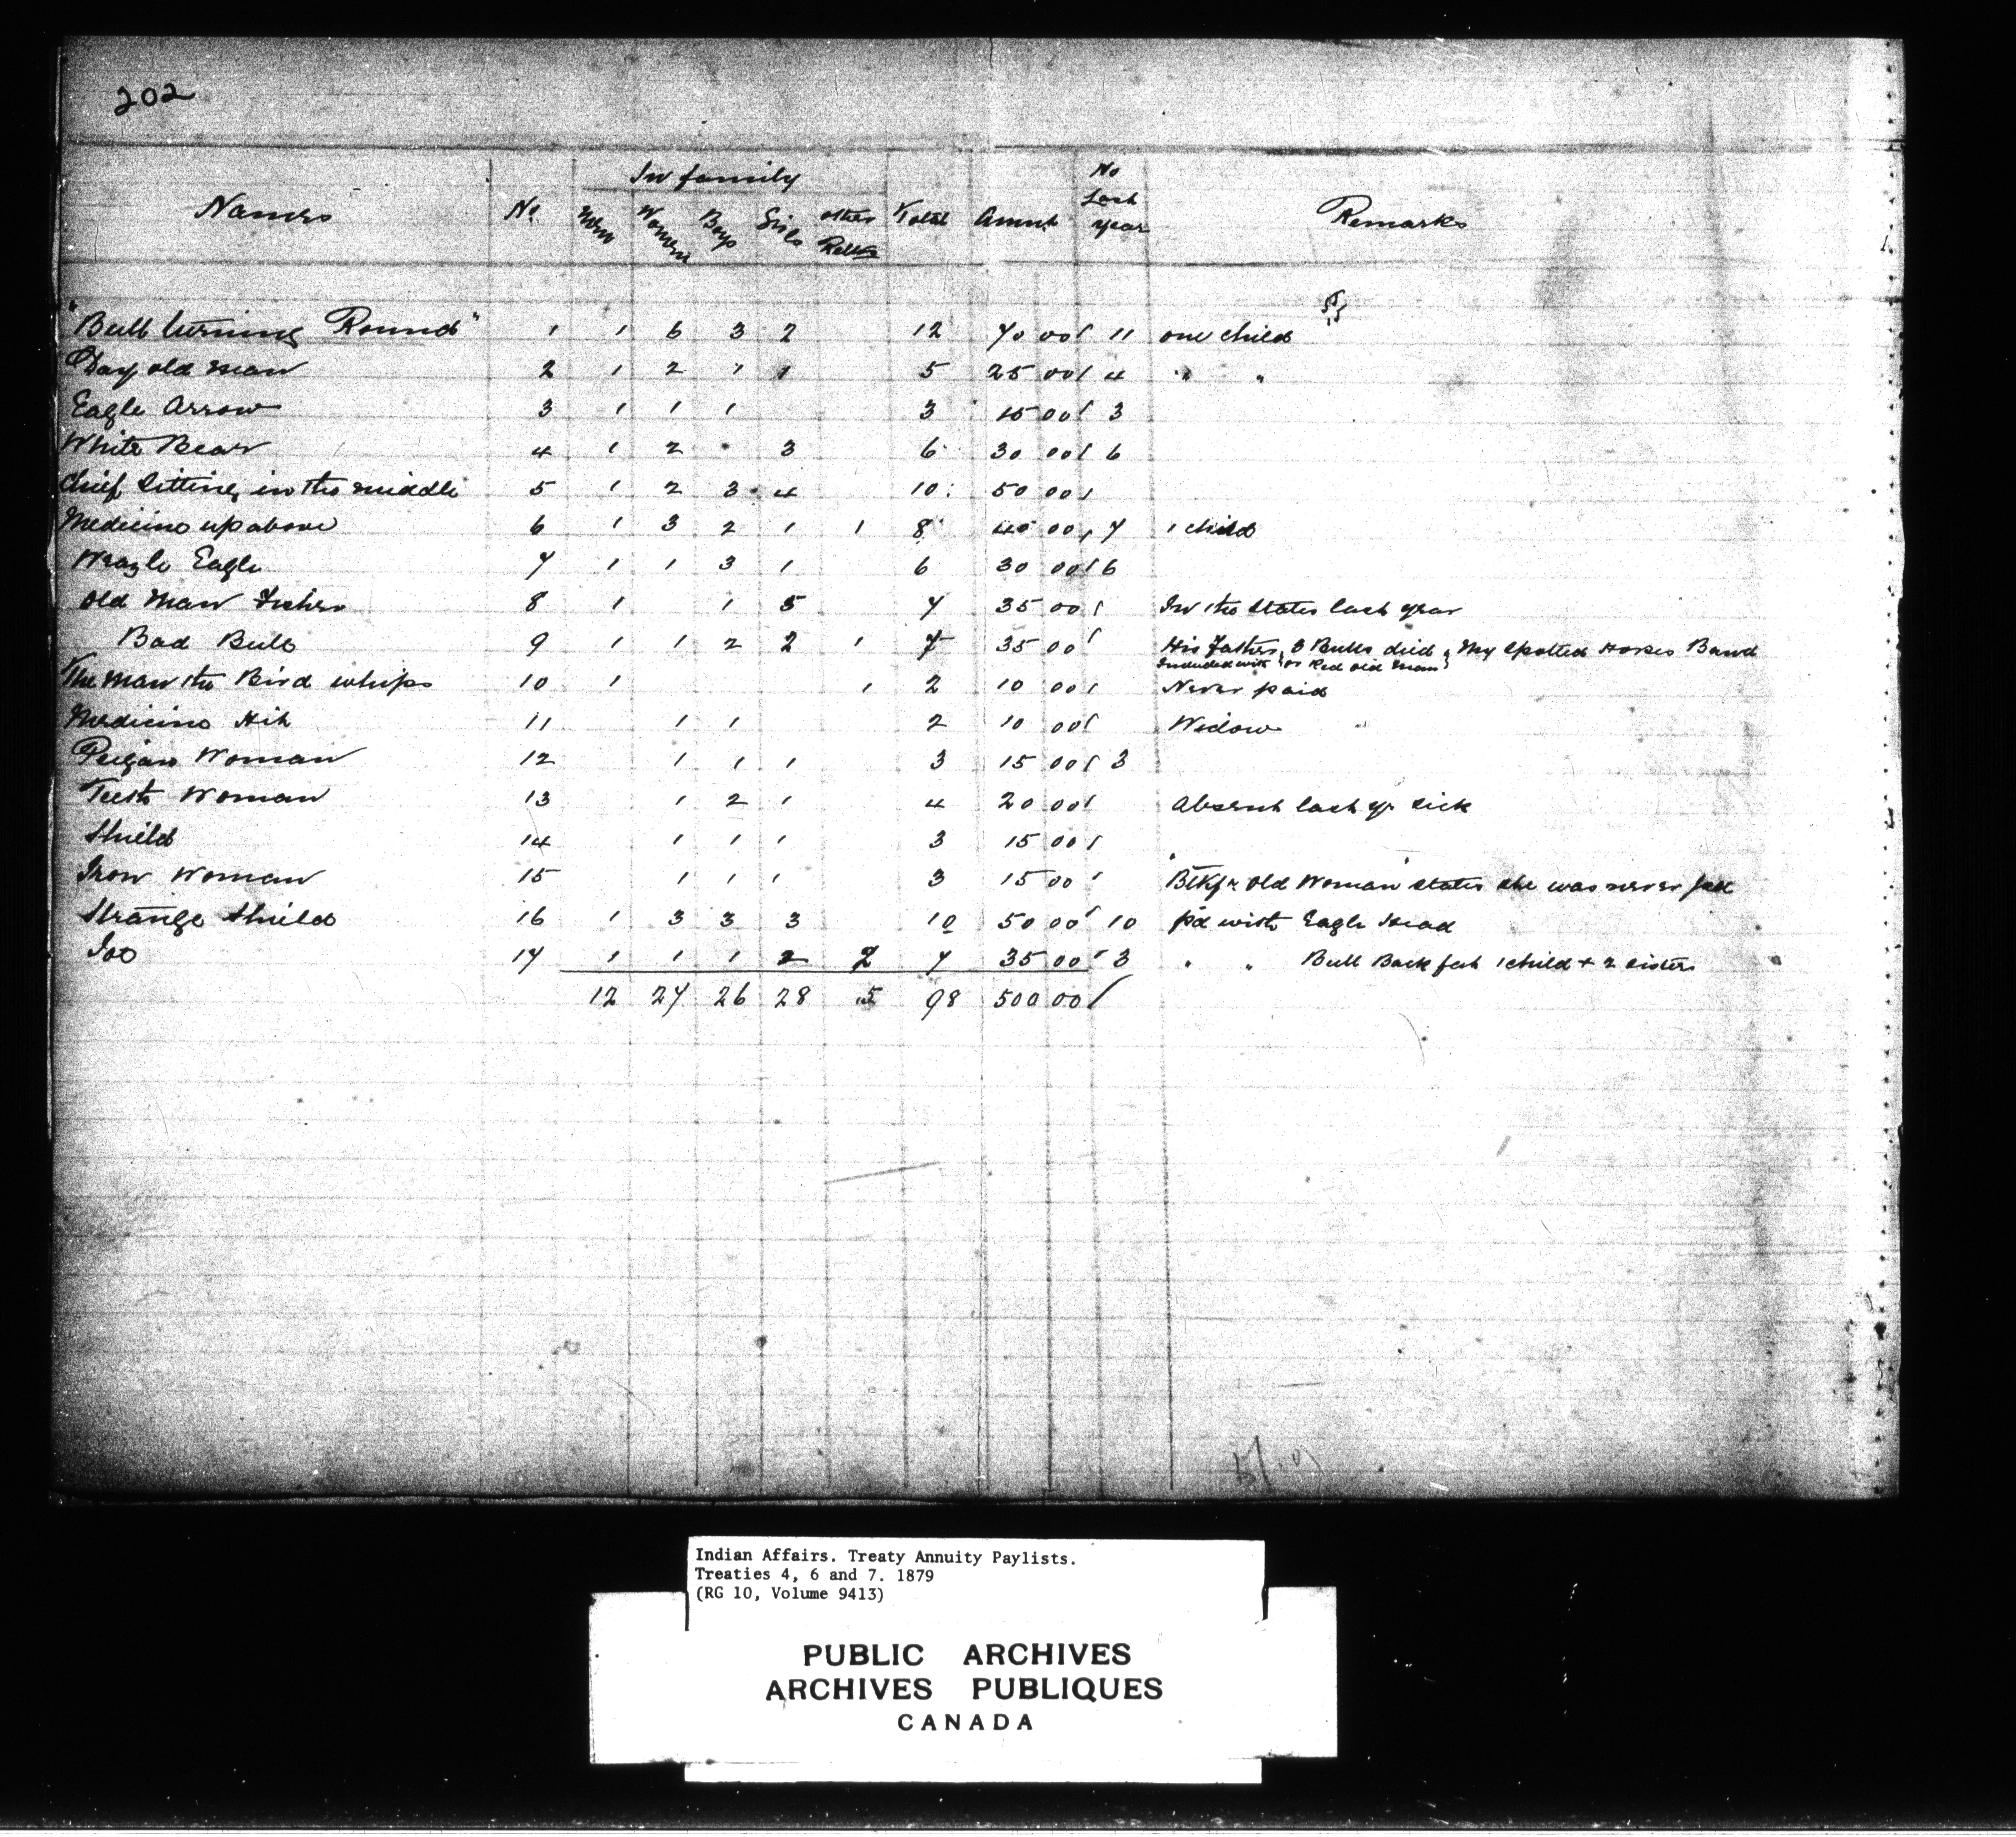 202
In family
Names No Men Women Boys Girls other Relts Total Amnt No Last year Remarks
"Bull turning Round" 1 1 6 3 2 12 70 00 11 one child
Day old man 2 1 2 1 1 5 25 00 4 " "
Eagle Arrow 3 1 1 1 3 15 00 3
White Bear 4 1 2 3 6 30 00 6
Chief Sitting in the middle 5 1 2 3 4 10 50 00
Medicine up above 6 1 3 2 1 1 8 40 00 7 1 child
Eagle 7 1 1 3 1 6 30 00 6
Old Man 8 1 1 5 7 35 00 In the States last year
Bad Bull 9 1 1 2 2 1 7 35 00 His Father, 3 Bulls died, My Spotted Horses Band
Included with "or Red Old Man"
The man the Bird whips 10 1 1 2 10 00 Never paid
Medicine Hit 11 1 1 2 10 00 Widow
Peigan Woman 12 1 1 1 3 15 00 3
Teeth Woman 13 1 2 1 4 20 00 Absent last yr sick
Shield 14 1 1 1 3 15 00
Iron Woman 15 1 1 1 3 15 00 Old Woman" states she was never
Strange Shield 16 1 3 3 3 10 50 00 10 pd with Eagle Head
17 1 1 1 2 2 7 35 00 3 " " Bull Back fat 1 child + 2 sisters
12 27 26 28 5 98 500 00
Indian Affairs. Treaty Annuity Paylists.
Treaties 4, 6 and 7. 1879
(RG 10, Volume 9413)
PUBLIC ARCHIVES
ARCHIVES PUBLIQUES
CANADA